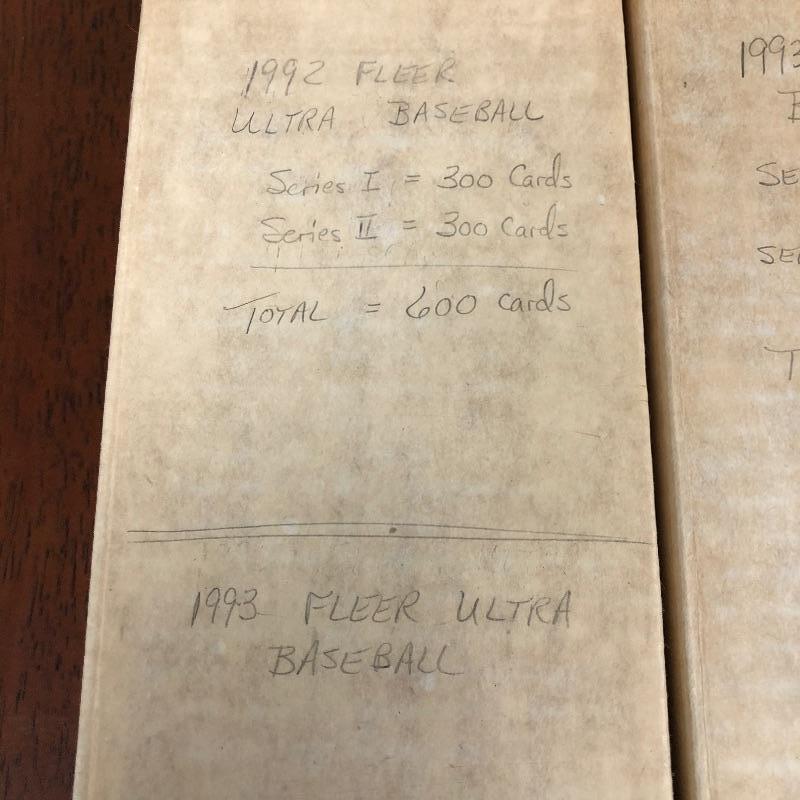 1992 FLEER
ULTRA BASEBALL
Series I = 300 Cards
Series II = 300 Cards
TOTAL = 600 cards
1993 FLEER ULTRA
BASEBALL
1993
SE
SE
T